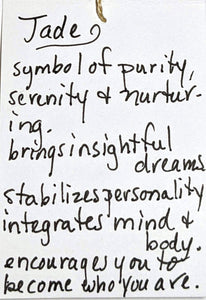 Jade
symbol of purity,
serenity & nurtur-
ing.
brings insightful
dreams
stabilizes personality
integrates mind &
body.
encourages you to
become who you are.